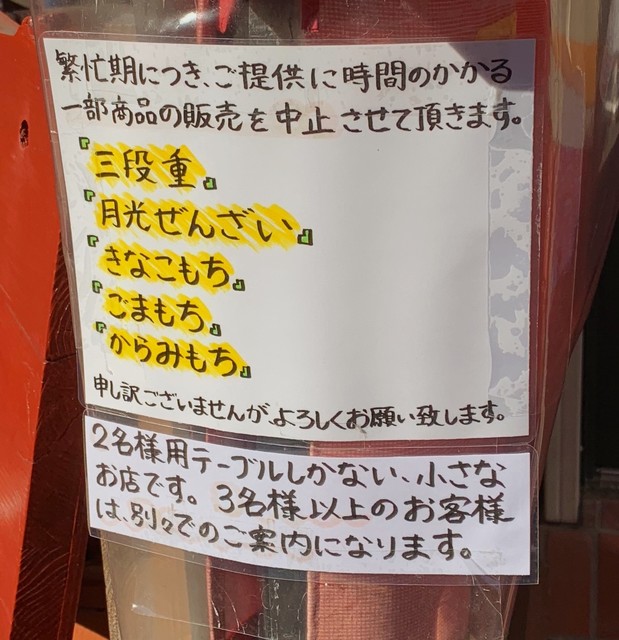 繁忙期につき、ご提供に時間のかかる
一部商品の販売を中止させて頂きます。
『三段重』
『月光ぜんざい』
『きなこもち』
『ごまもち』
『からみもち』
申し訳ございませんがよろしくお願い致します。
2名様用テーブルしかない、小さな
お店です。3名様以上のお客様
は、別々でのご案内になります。